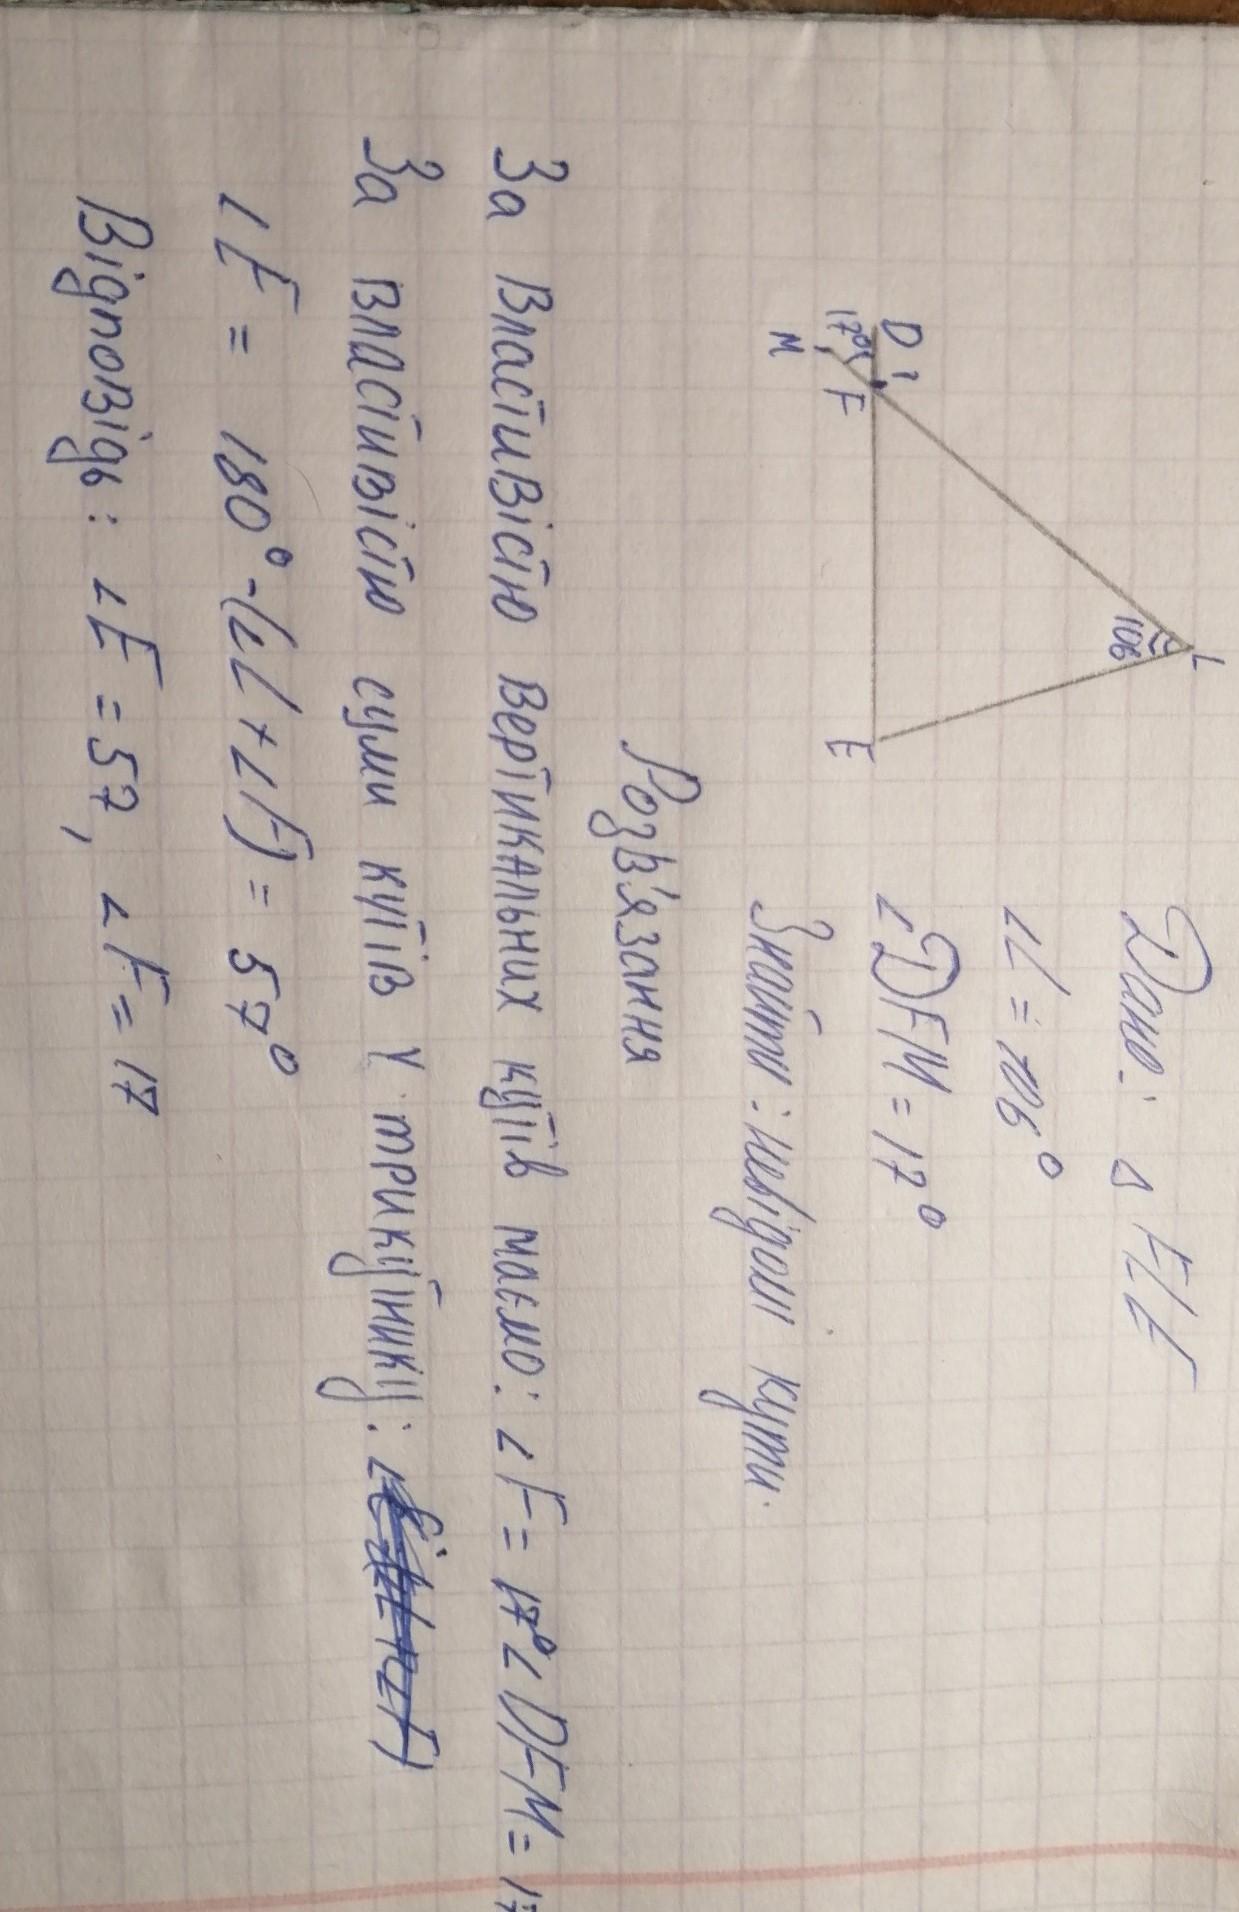 Дано: △ FLE
∠L = 106°
∠DFM = 17°
Знайти: невідомі кути.
L
106
D
17°
M
F
E
Розв'язання
За властивістю вертикальних кутів маємо: ∠F = 17° ∠DFM = 17
За властивістю суми кутів у трикутнику: ∠
∠E = 180° - (∠L + ∠F) = 57°
Відповідь: ∠E = 57, ∠F = 17